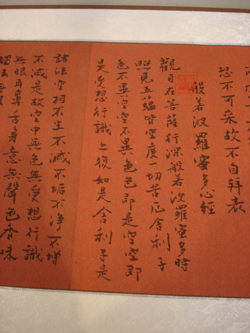 恐不可采故不自拜衰
般若波羅蜜多心經
觀自在菩薩行深般若波羅蜜多時
照見五蘊皆空度一切苦厄舍利子
色不異空空不異色色即是空空即
是受想行識亦復如是舍利子是
諸法空相不生不滅不垢不淨不增
不減是故空中無色無受想行識
無眼耳鼻舌身意無聲色香味